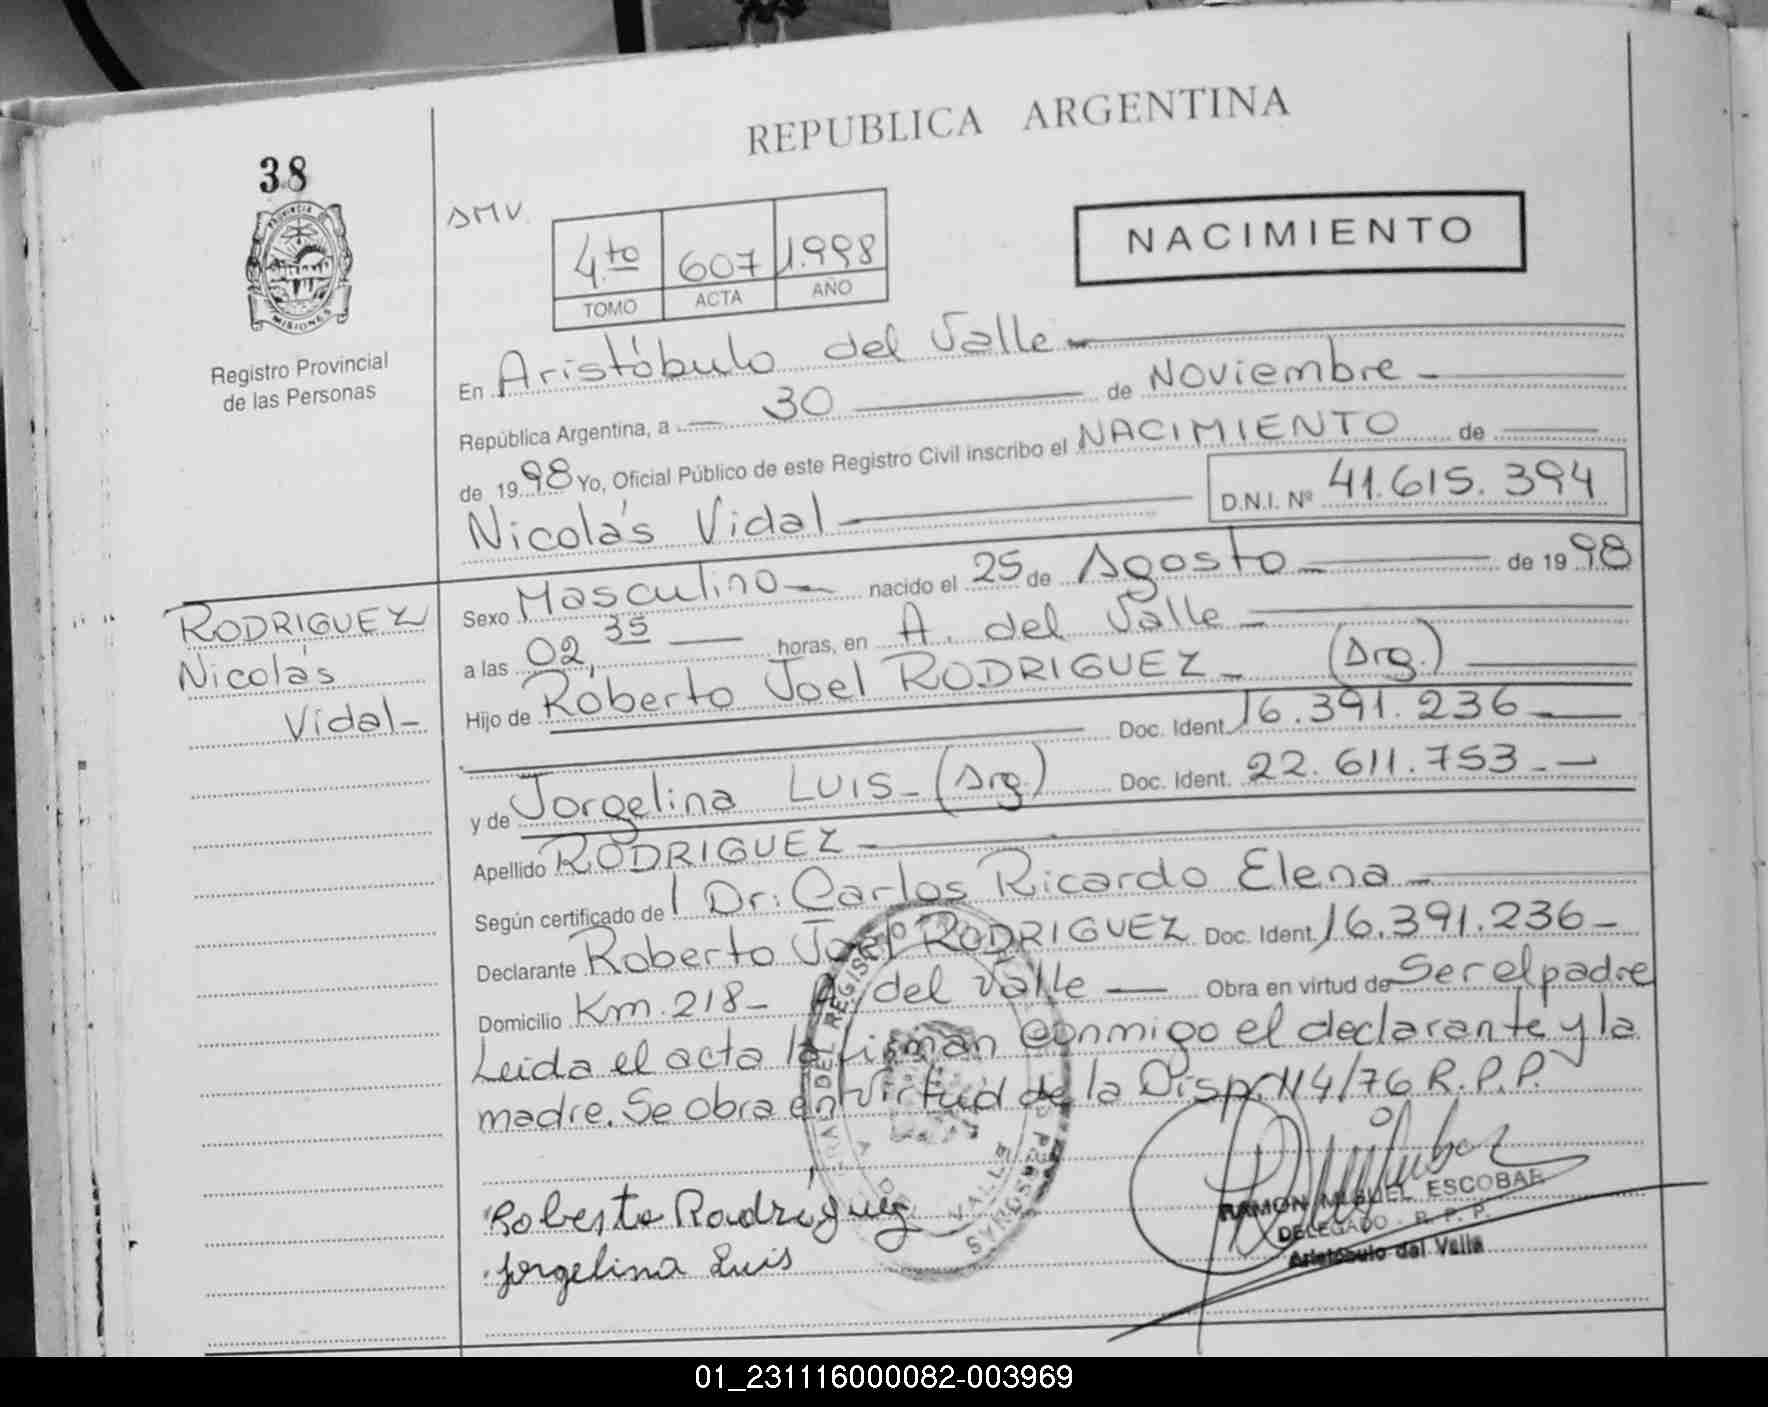 REPUBLICA ARGENTINA
38
PROVINCIA DE
MISIONES
Registro Provincial
de las Personas
SMV.
4.to 607 1.998
TOMO ACTA AÑO
NACIMIENTO
En Aristóbulo del Valle
República Argentina, a 30 de Noviembre
de 1998 Yo, Oficial Público de este Registro Civil inscribo el NACIMIENTO de
Nicolás Vidal D.N.I. Nº 41.615.394
RODRIGUEZ
Nicolás
Vidal-
Sexo Masculino nacido el 25 de Agosto de 1998
a las 02,35 horas, en A. del Valle
Hijo de Roberto Joel RODRIGUEZ (Arg.)
Doc. Ident. 16.391.236
y de Jorgelina LUIS-(Arg.) Doc. Ident. 22.611.753.-
Apellido RODRIGUEZ
Según certificado de l Dr: Carlos Ricardo Elena
Declarante Roberto Joel RODRIGUEZ Doc. Ident. 16.391.236-
Domicilio Km.218- A. del Valle Obra en virtud de Ser el padre
Leida el acta la firman conmigo el declarante y la
madre. Se obra en virtud de la Disp. 114/76 R.P.P.
Roberto Rodriguez
Jorgelina Luis
RAMON MIGUEL ESCOBAR
DELEGADO - R. P. P.
Aristóbulo del Valle
01_231116000082-003969